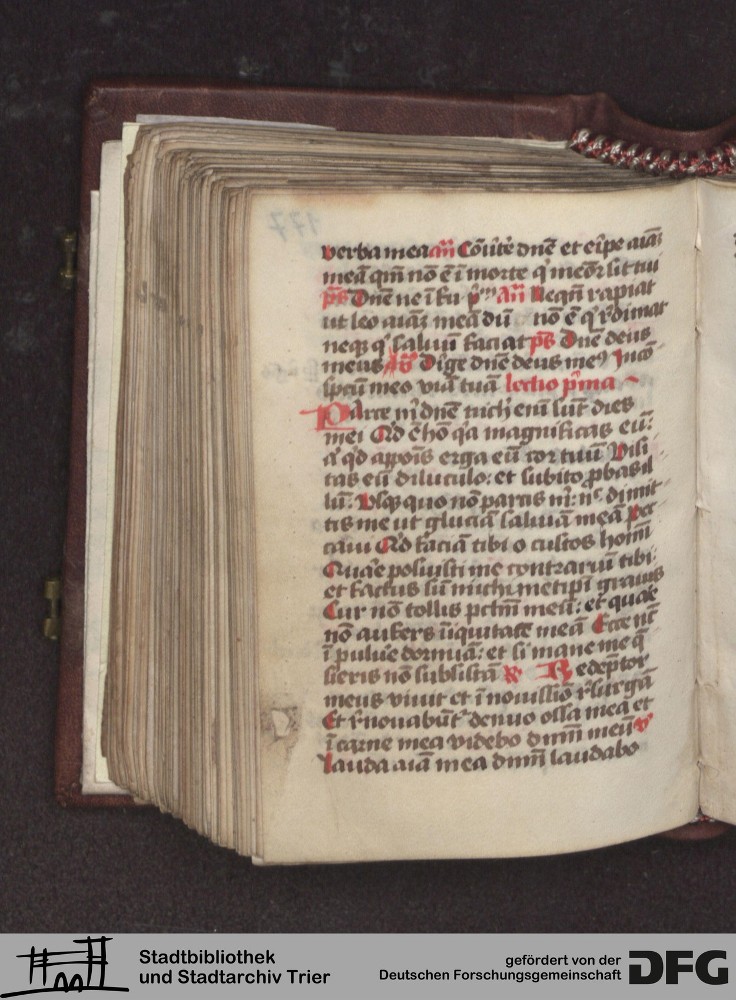 verba mea añ Cõũtẽ dnẽ et eĩpe aiaz
meã qm̃ nõ ẽ ĩ morte q' meõr sit tui
ps Dnẽ ne ĩ fu pͫ Añ Neqñ rapiat
ut leo aiaz meã dũ nõ ẽ q' r̃dimat
neqz q' saluũ faciat ps Dnẽ deus
meus añ Dige dnẽ deus me9 ĩ
spcũ meo viã tuã lectio pĩma
Parce m' dnẽ nichĩ enĩ sũt dies
mei Qd ẽ hõ q'a magnificas eũ:
a' q'd appõis erga eũ cor tuũ Visi
tas eũ diluculo: et subito pbas il
lũ: Vsqz quo nõ parcis m': n' dimit
tis me ut gluciã saluiã meã pec
caui Qd faciã tibi o custos homĩ
Quare posuisti me contrariũ tibi:
et factus sũ michĩ metipĩ grauis
Cur nõ tollis pctm̃ meũ: et quare
nõ aufers ĩiquitatẽ meã Ecce nc̃
ĩ puluẽ dormiã: et si mane me q̃
sieris nõ subsistã R Redẽptor
meus viuit et ĩ nouissiõ r'surgã
Et r'nouabũt denuo ossa mea et
ĩ carne mea videbo dnm̃ meũ v
lauda aiã mea dnm̃ laudabo
Stadtbibliothek
und Stadtarchiv Trier
gefördert von der
Deutschen Forschungsgemeinschaft
DFG